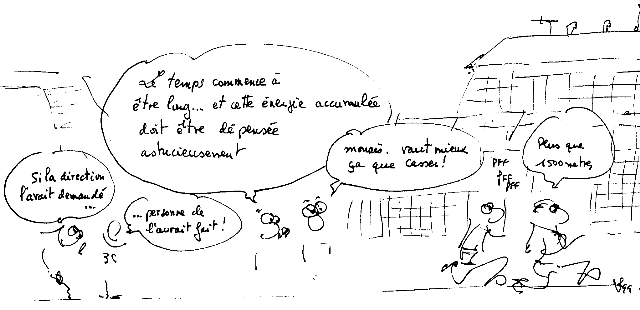 Le temps commence à
être long... et cette énergie accumulée
doit être dépensée
astucieusement
mouais. vaut mieux
ça que casser!
PFF
PFF
PFF
Plus que
1500 metres
Si la direction
l'avait demandé
...
... personne ne
l'aurait fait!